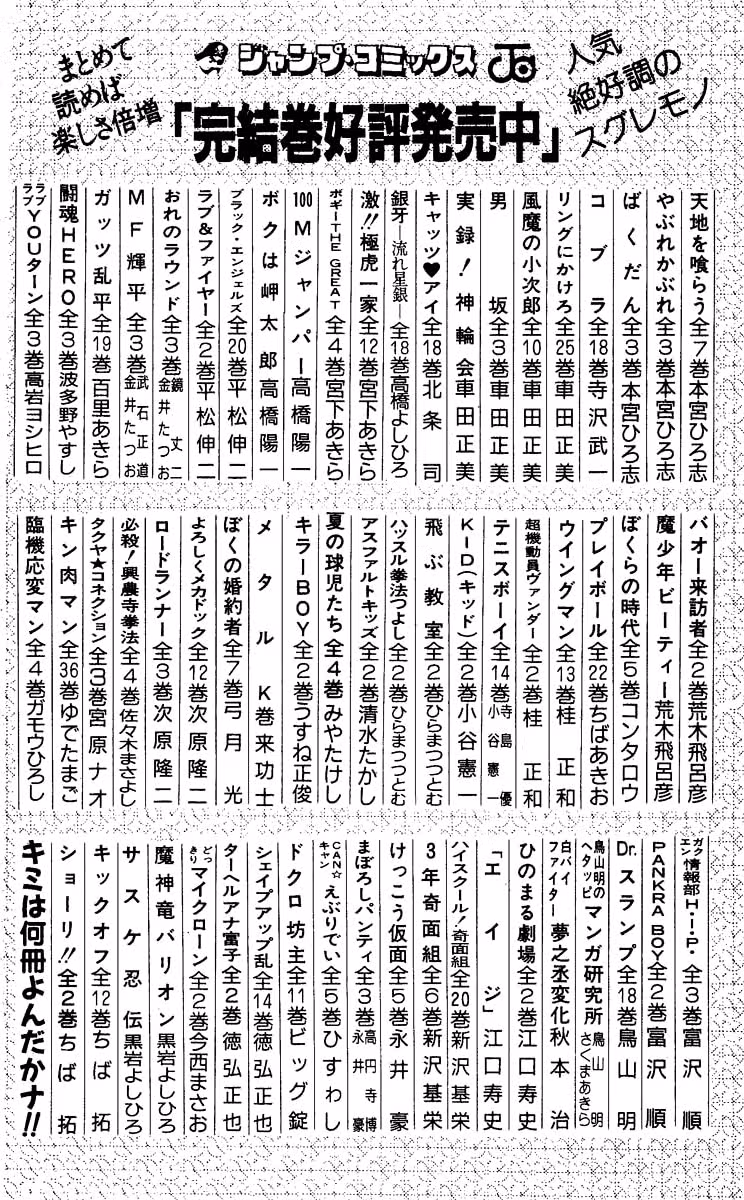 まとめて
読めば
楽しさ倍増
ジャンプ・コミックス
人気
絶好調の
スグレモノ
「完結巻好評発売中」
天地を喰らう全7巻本宮ひろ志
やぶれかぶれ全3巻本宮ひろ志
ばくだん全3巻本宮ひろ志
コブラ全18巻寺沢武一
リングにかけろ全25巻車田正美
風魔の小次郎全10巻車田正美
男坂全3巻車田正美
実録!神輪会車田正美
キャッツ♥アイ全18巻北条司
銀牙―流れ星銀―全18巻高橋よしひろ
激!!極虎一家全12巻宮下あきら
ボギーTHE GREAT全4巻宮下あきら
100Mジャンパー高橋陽一
ボクは岬太郎高橋陽一
ブラック・エンジェルズ全20巻平松伸二
ラブ&ファイヤー全2巻平松伸二
おれのラウンド全3巻鏡丈二 金井たつお
MF輝平全3巻武石正道 金井たつお
ガッツ乱平全19巻百里あきら
闘魂HERO全3巻波多野やすし
ラブラブYOUターン全3巻高岩ヨシヒロ
バオー来訪者全2巻荒木飛呂彦
魔少年ビーティー荒木飛呂彦
ぼくらの時代全5巻コンタロウ
プレイボール全22巻ちばあきお
ウイングマン全13巻桂正和
超機動員ヴァンダー全2巻桂正和
テニスボーイ全14巻寺島優 小谷憲一
KID(キッド)全2巻小谷憲一
飛ぶ教室全2巻ひらまつつとむ
ハッスル拳法つよし全2巻ひらまつつとむ
アスファルトキッズ全2巻清水たかし
夏の球児たち全4巻みやたけし
キラーBOY全2巻うすね正俊
メタルK巻来功士
ぼくの婚約者全7巻弓月光
よろしくメカドック全12巻次原隆二
ロードランナー全3巻次原隆二
必殺!興農寺拳法全4巻佐々木まさよし
タクヤ★コネクション全3巻宮原ナオ
キン肉マン全36巻ゆでたまご
臨機応変マン全4巻ガモウひろし
ガクエン情報部H・I・P・全3巻富沢順
PANKRA BOY全2巻富沢順
Dr.スランプ全18巻鳥山明
鳥山明のヘタッピマンガ研究所鳥山明 さくまあきら
白バイファイター夢之丞変化秋本治
ひのまる劇場全2巻江口寿史
「エイジ」江口寿史
ハイスクール!奇面組全20巻新沢基栄
3年奇面組全6巻新沢基栄
けっこう仮面全5巻永井豪
まぼろしパンティ全3巻高円寺博 永井豪
CAN☆キャンえぶりでい全5巻ひすわし
ドクロ坊主全11巻ビッグ錠
シェイプアップ乱全14巻徳弘正也
ターヘルアナ富子全2巻徳弘正也
どっきりマイクローン全2巻今西まさお
魔神竜バリオン黒岩よしひろ
サスケ忍伝黒岩よしひろ
キックオフ全12巻ちば拓
ショーリ!!全2巻ちば拓
キミは何冊よんだかナ!!